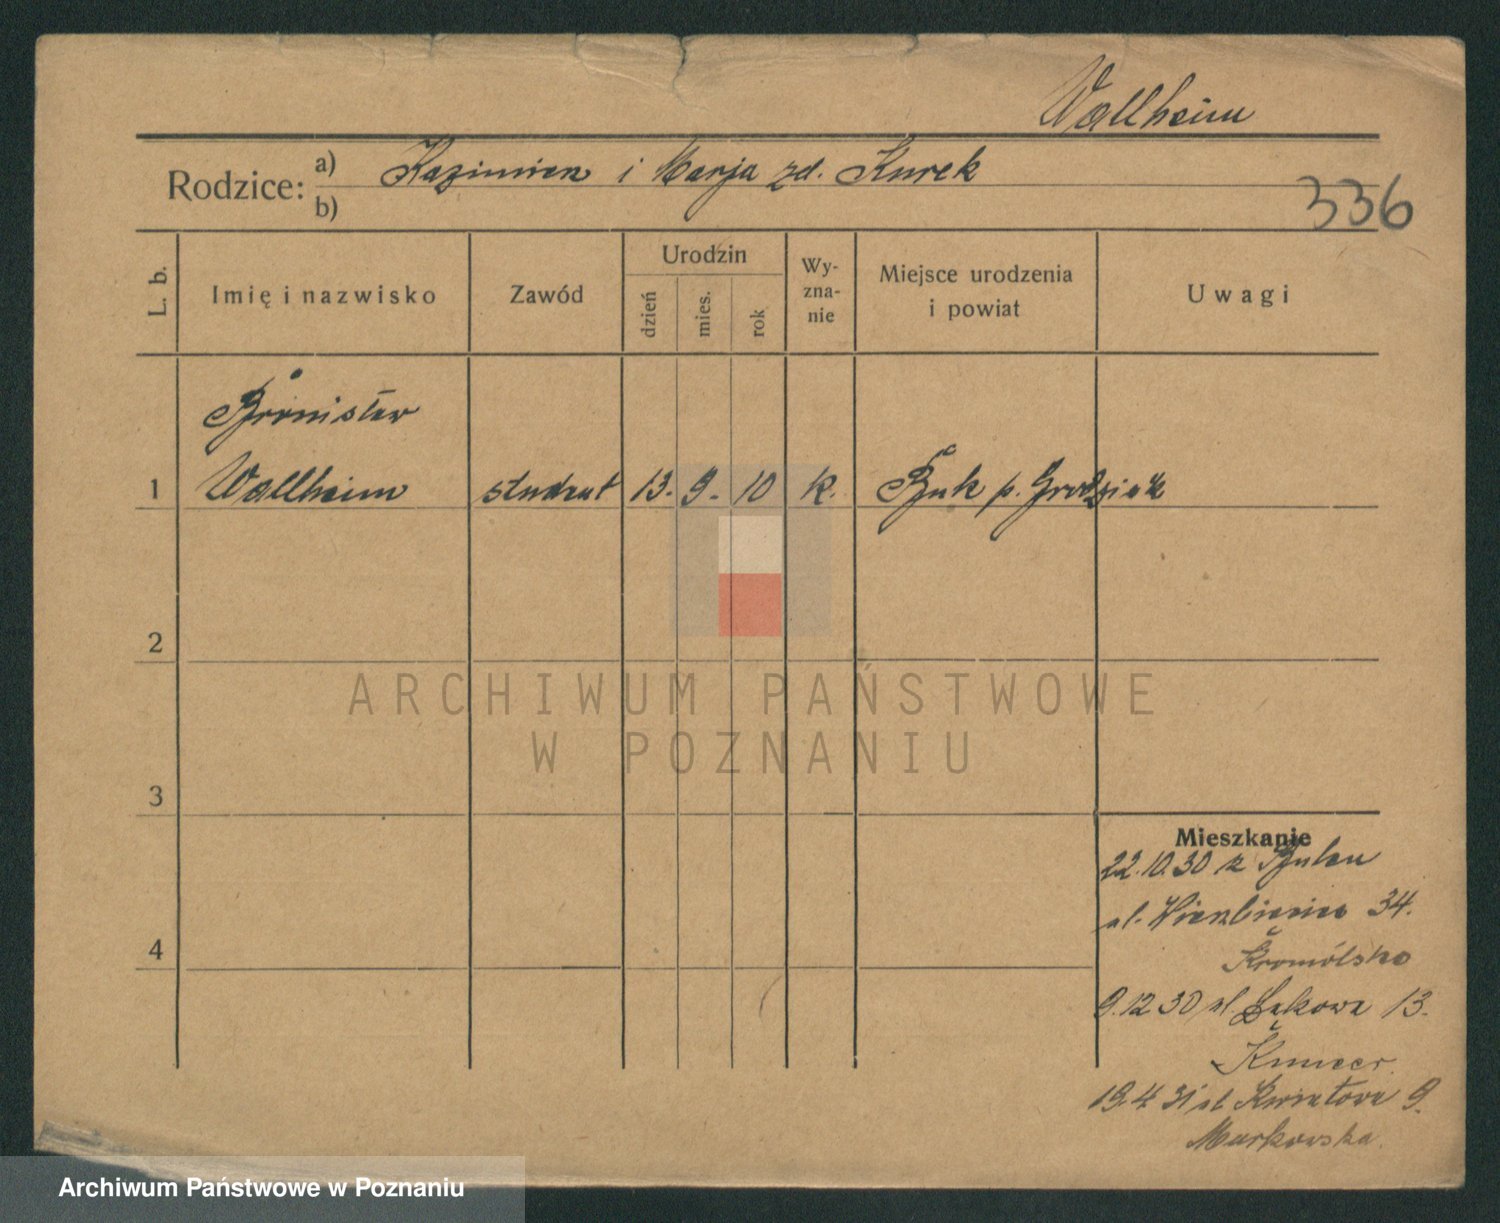 Wallheim
Rodzice: a) Kazimierz i Marja zd. Kurek
b)
336
L. b.
Imię i nazwisko
Zawód
Urodzin
dzień
mies.
rok
Wy-
zna-
nie
Miejsce urodzenia
i powiat
Uwagi
Bronisław
1 Wallheim student 13. 9. 10 k. Buk p. Grodzisk
2
3
4
Mieszkanie
22.10.30 z Buku
ul. Wierzbięcice 34.
9.12 30 ul. Łąkowa 13.
19.4 31 ul Kwiatowa 9.
Markowska.
ARCHIWUM PAŃSTWOWE
W POZNANIU
Archiwum Państwowe w Poznaniu